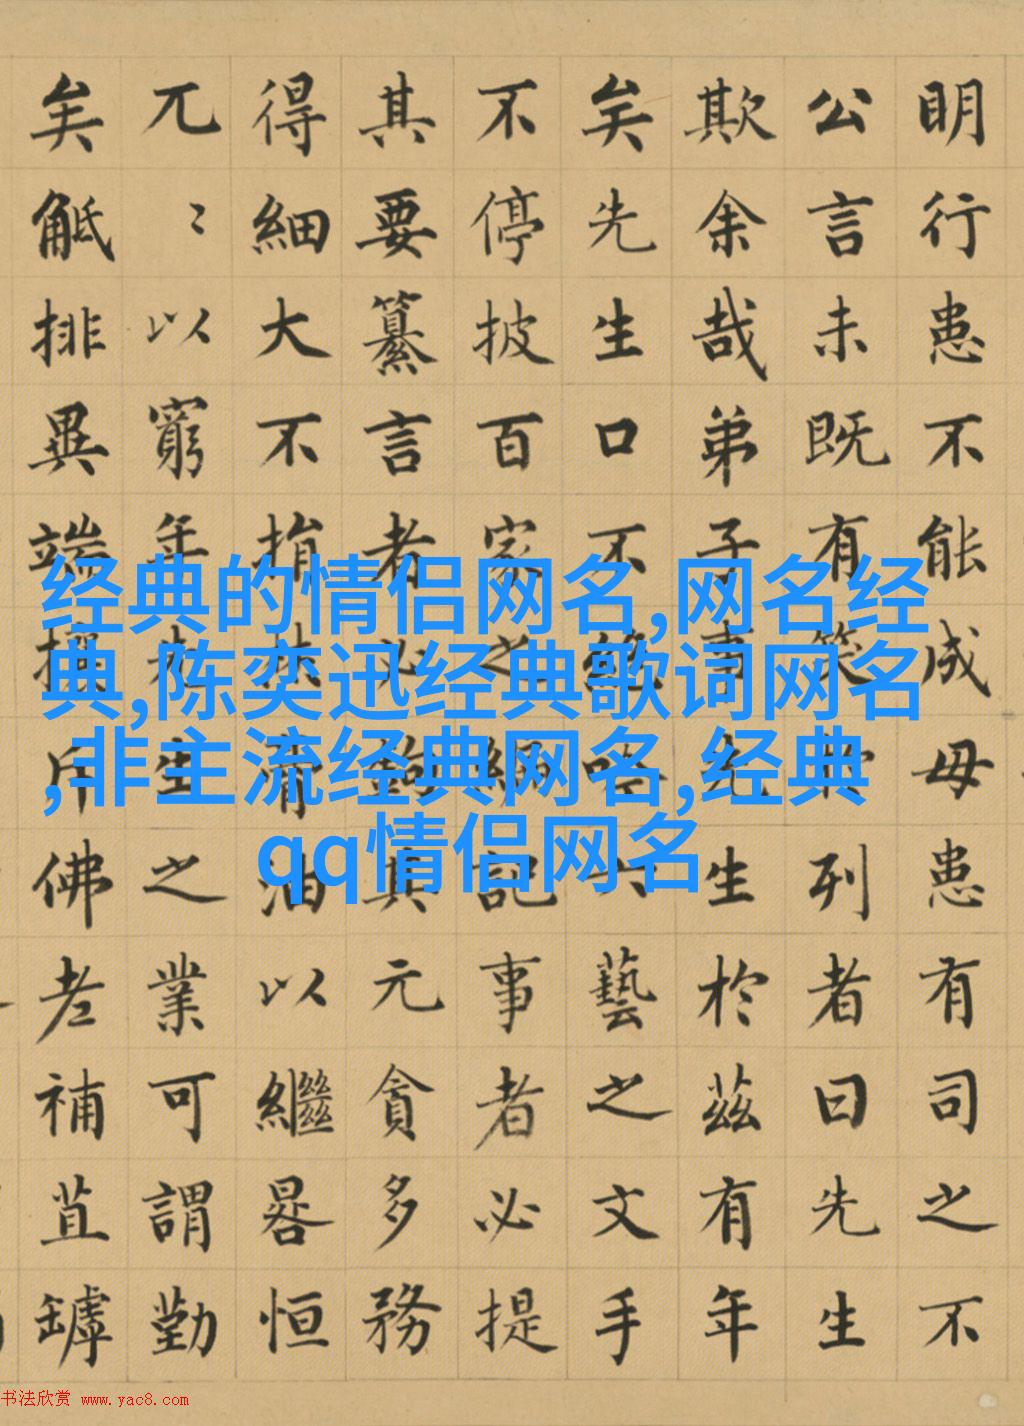 明行患不能成毋患有司之不
公言未既有笑於列者曰先生
欺余哉弟子事先生於茲有年
矣先生口不絶吟六藝之文手
不停披百家之編記事者必提
其要纂言者必鉤其元貪多務
得細大不捐焚膏油以繼晷恒
兀〻以窮年先生之業可謂勤
矣觝排異端攘斥佛老補苴罅
经典的情侣网名,网名经
典,陈奕迅经典歌词网名
,非主流经典网名,经典
qq情侣网名
书法欣赏 www.yac8.com